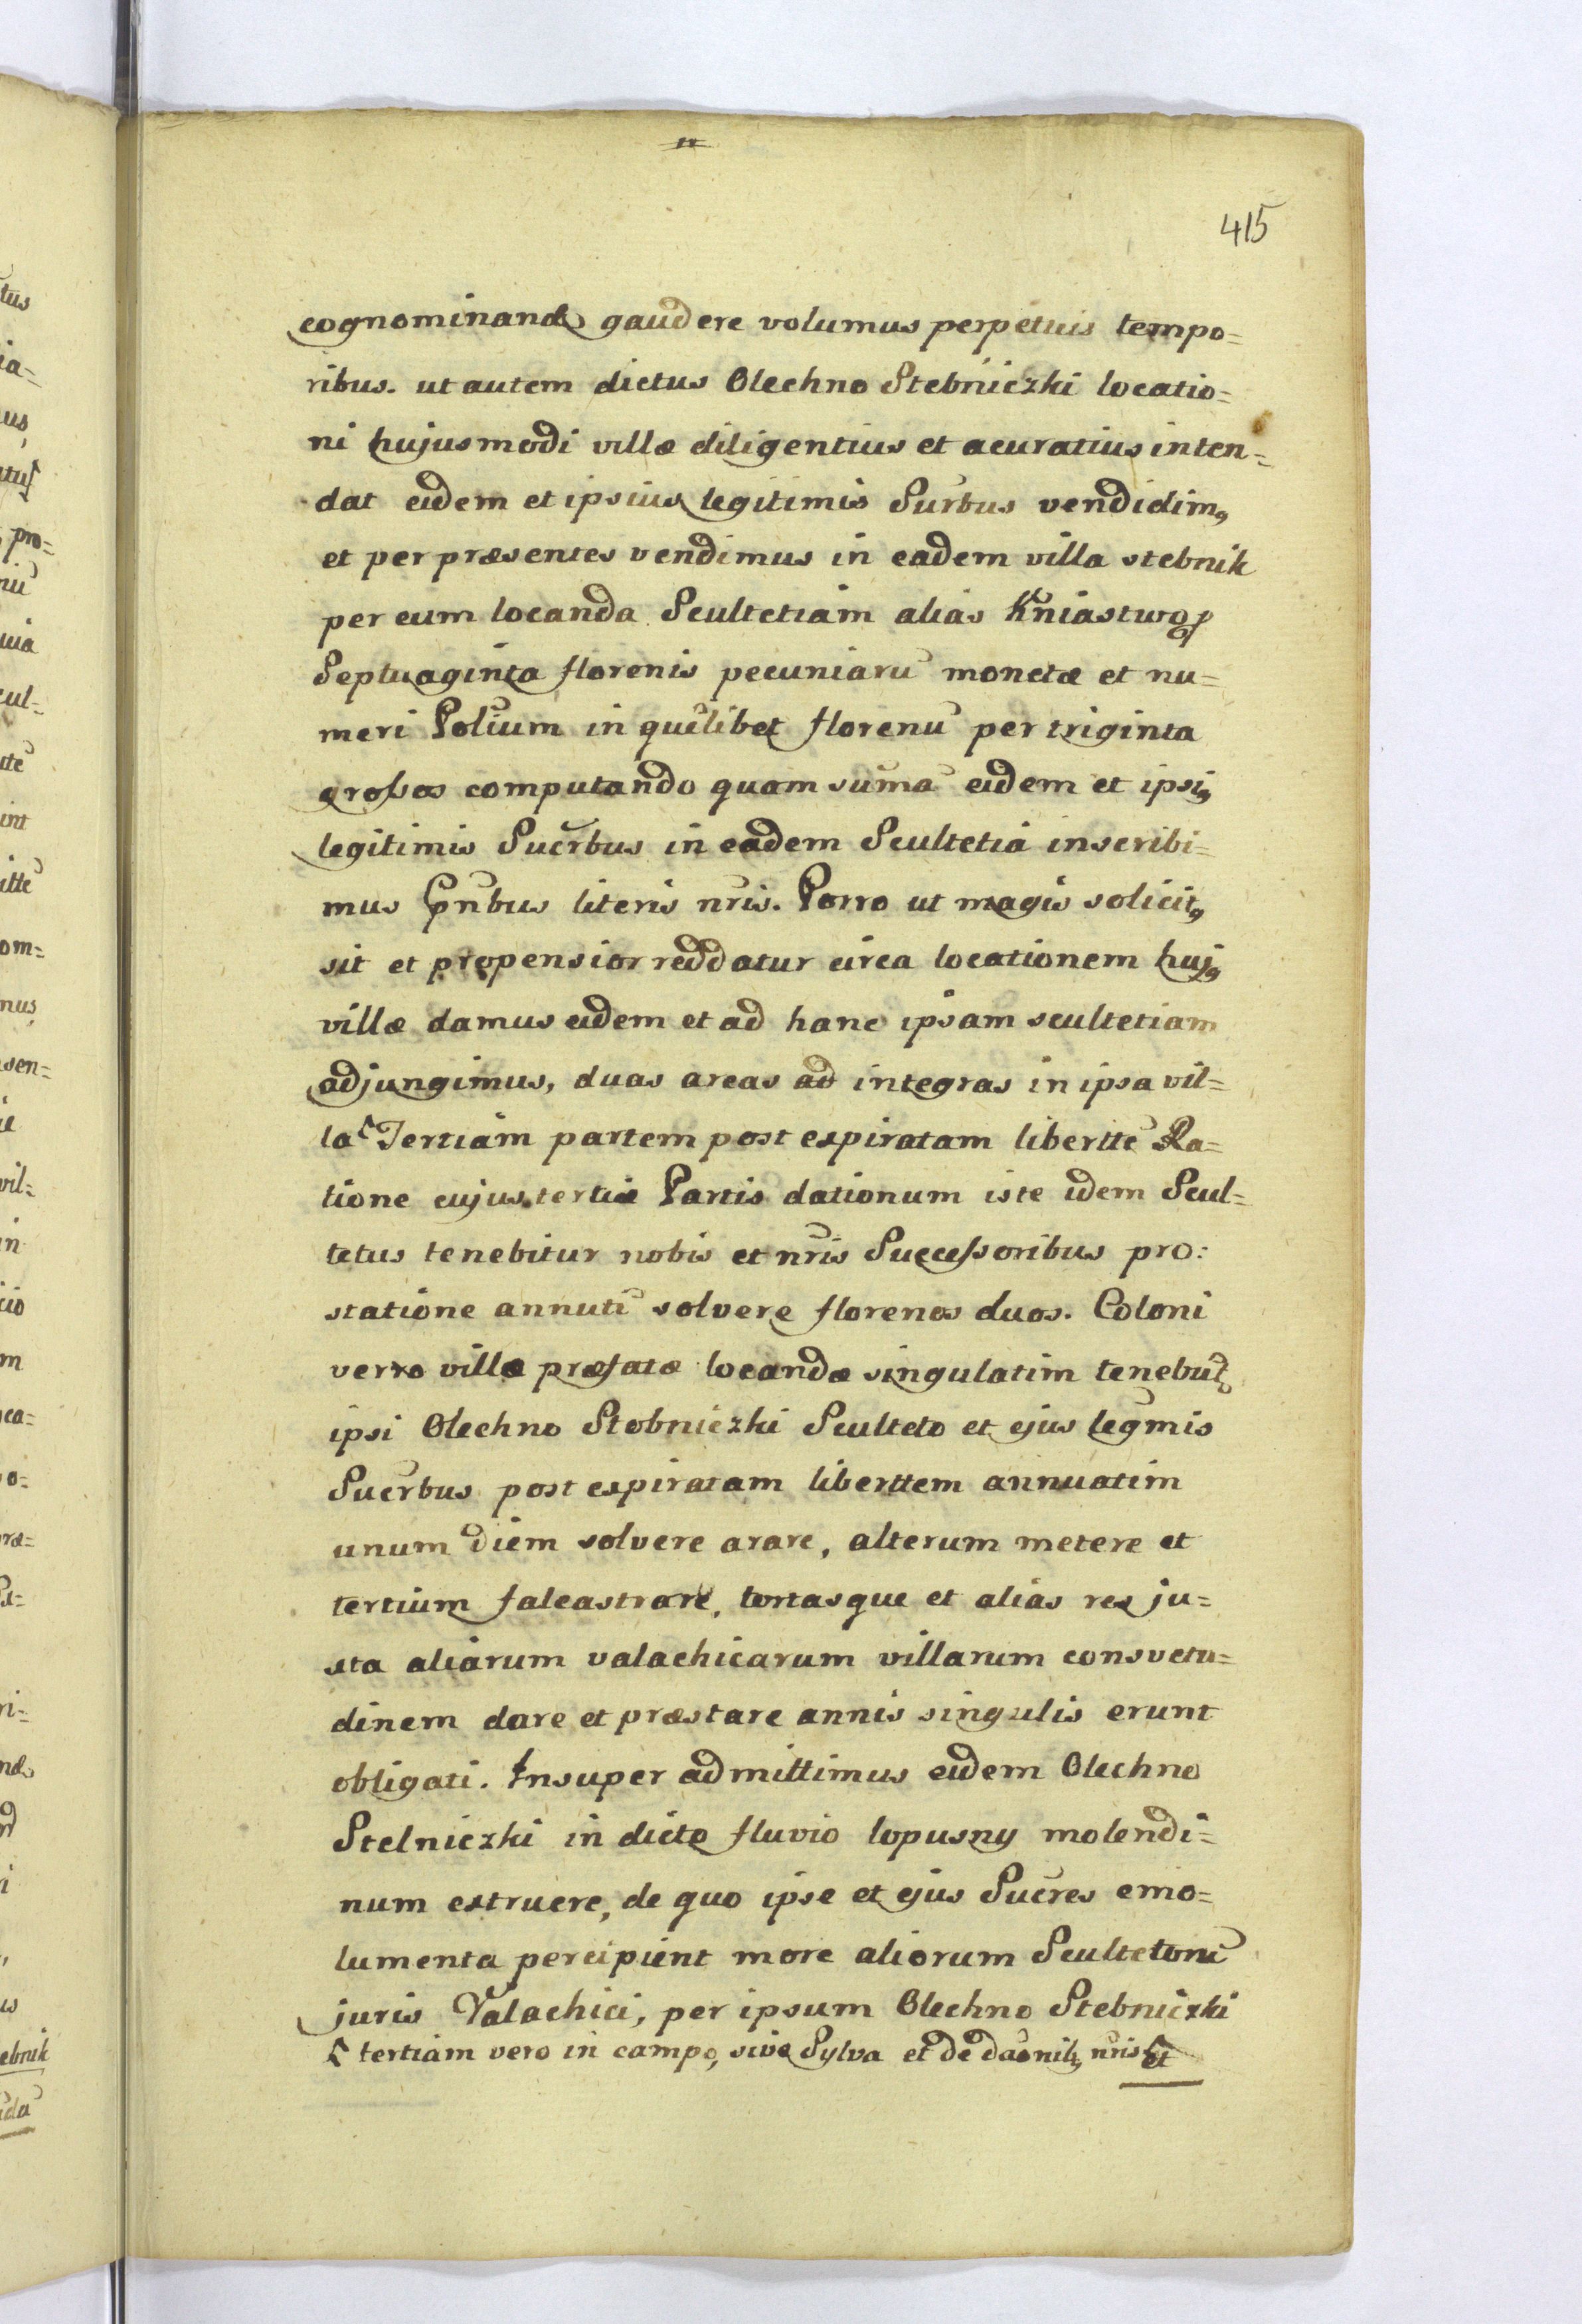 415
cognominandæ gaudere volumus perpetuis tempo=
ribus. ut autem dictus Olechno Stebniczki locatio=
ni hujusmodi villæ diligentius et acuratius inten=
dat eidem et ipsius legitimis Surbus vendidim9
et per præsentes vendimus in eadem villa stebnik
per eum locanda Scultetiam alias Kniastwo
Septuaginta florenis pecuniarū monetæ et nu=
meri Polium in quēlibet florenū per triginta
grossos computando quam sumā eidem et ipsi9
legitimis Sucrbus in eadem Scultetia inscribi=
mus pñbus literis nris. Porro ut magis solicit9
sit et propensior reddatur circa locationem huj9
villæ damus eidem et ad hanc ipsam scultetiam
adjungimus, duas areas ad integras in ipsa vil=
la Tertiam partem post expiratam liberttē Ra=
tione cujus tertiæ Partis dationum iste idem Scul=
tetus tenebitur nobis et nris Successoribus pro:
statione annutī solvere florenos duos. Coloni
verro villæ præfatæ locandæ singulatim tenebut
ipsi Olechno Stobniczki Sculteto et ejus legmis
Sucrbus post expiratam liberttem annuatim
unum diem solvere arare, alterum metere et
tertium falcastrare, tortasque et alias res ju=
xta aliarum valachicarum villarum consvetu=
dinem dare et præstare annis singulis erunt
obligati. Insuper admittimus eidem Olechno
Stelniczki in dicto fluvio lopusny molendi=
num extruere, de quo ipse et ejus Sucres emo=
lumenta percipient more aliorum Scultetorū
juris Valachici, per ipsum Olechno Stebniczki
tertiam vero in campo, sive Sylva et de nris et